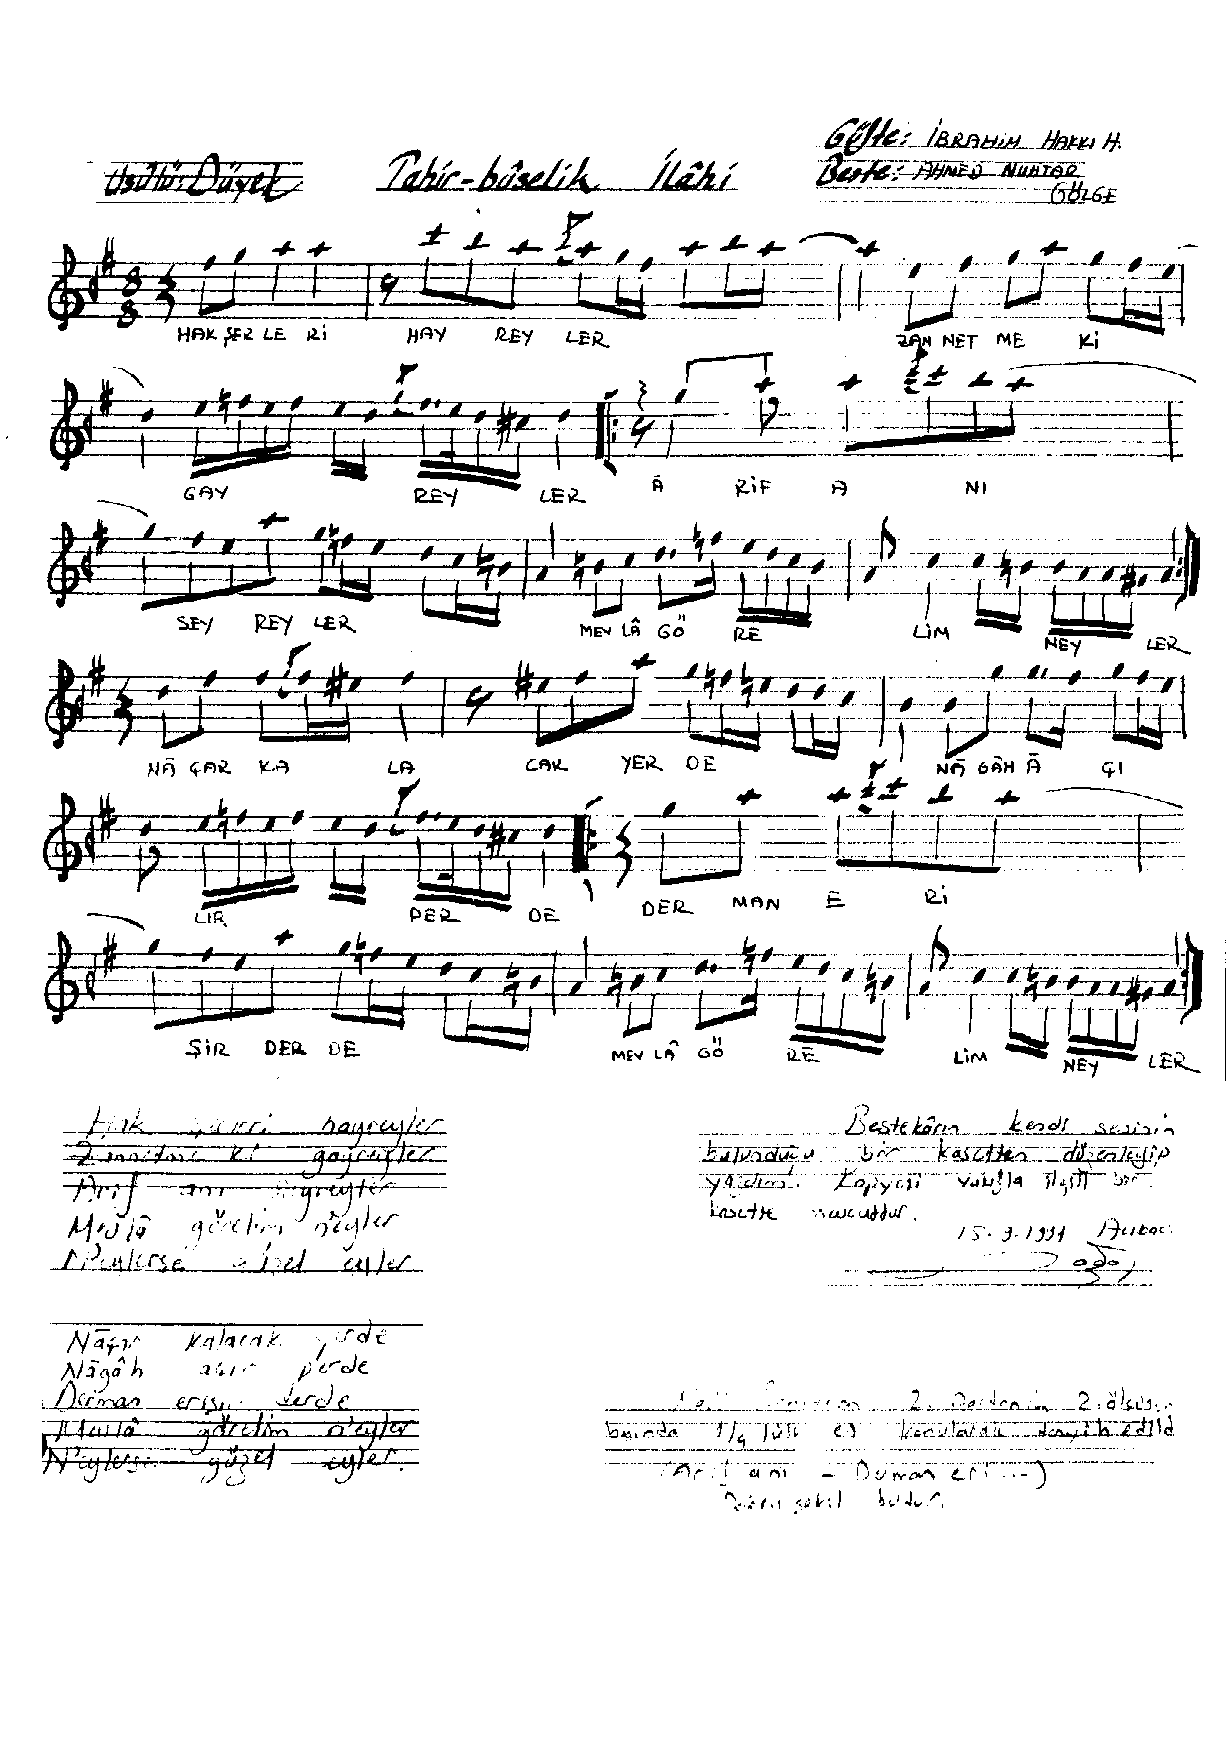 Usûlü: Düyek
Tahir-bûselik İlâhi
Güfte: İBRAHİM HAKKI H.
Beste: AHMED MUHTAR
GÖLGE
8
8
HAK ŞER LE Rİ HAY REY LER ZAN NET ME Kİ
GAY REY LER Â RİF A NI
SEY REY LER MEV LÂ GÖ RE LİM NEY LER
NÂ ÇAR KA LA CAK YER DE NÂ GÂH Â ÇI
LIR PER DE DER MAN E Rİ
ŞİR DER DE MEV LÂ GÖ RE LİM NEY LER
Hak hayreyler
Zannetme ki gayreyler
Arif anı seyreyler
Mevlâ görelim n'eyler
N'eylerse güzel eyler
Nâçar kalacak yerde
Nâgâh açır perde
Derman erişir derde
Mevlâ görelim n'eyler
N'eylerse güzel eyler.
Bestekârın kendi sesinin
bulunduğu bir kasetten düzenleyip
yazdım. Kopyesi vakıfla ilgili bir
kasette mevcuttur.
15.9.1991
2. 2. ölçüsün
başında 1/4 lük es konularak tashih edildi
(Arif anı - Derman eri...)
şekil budur.